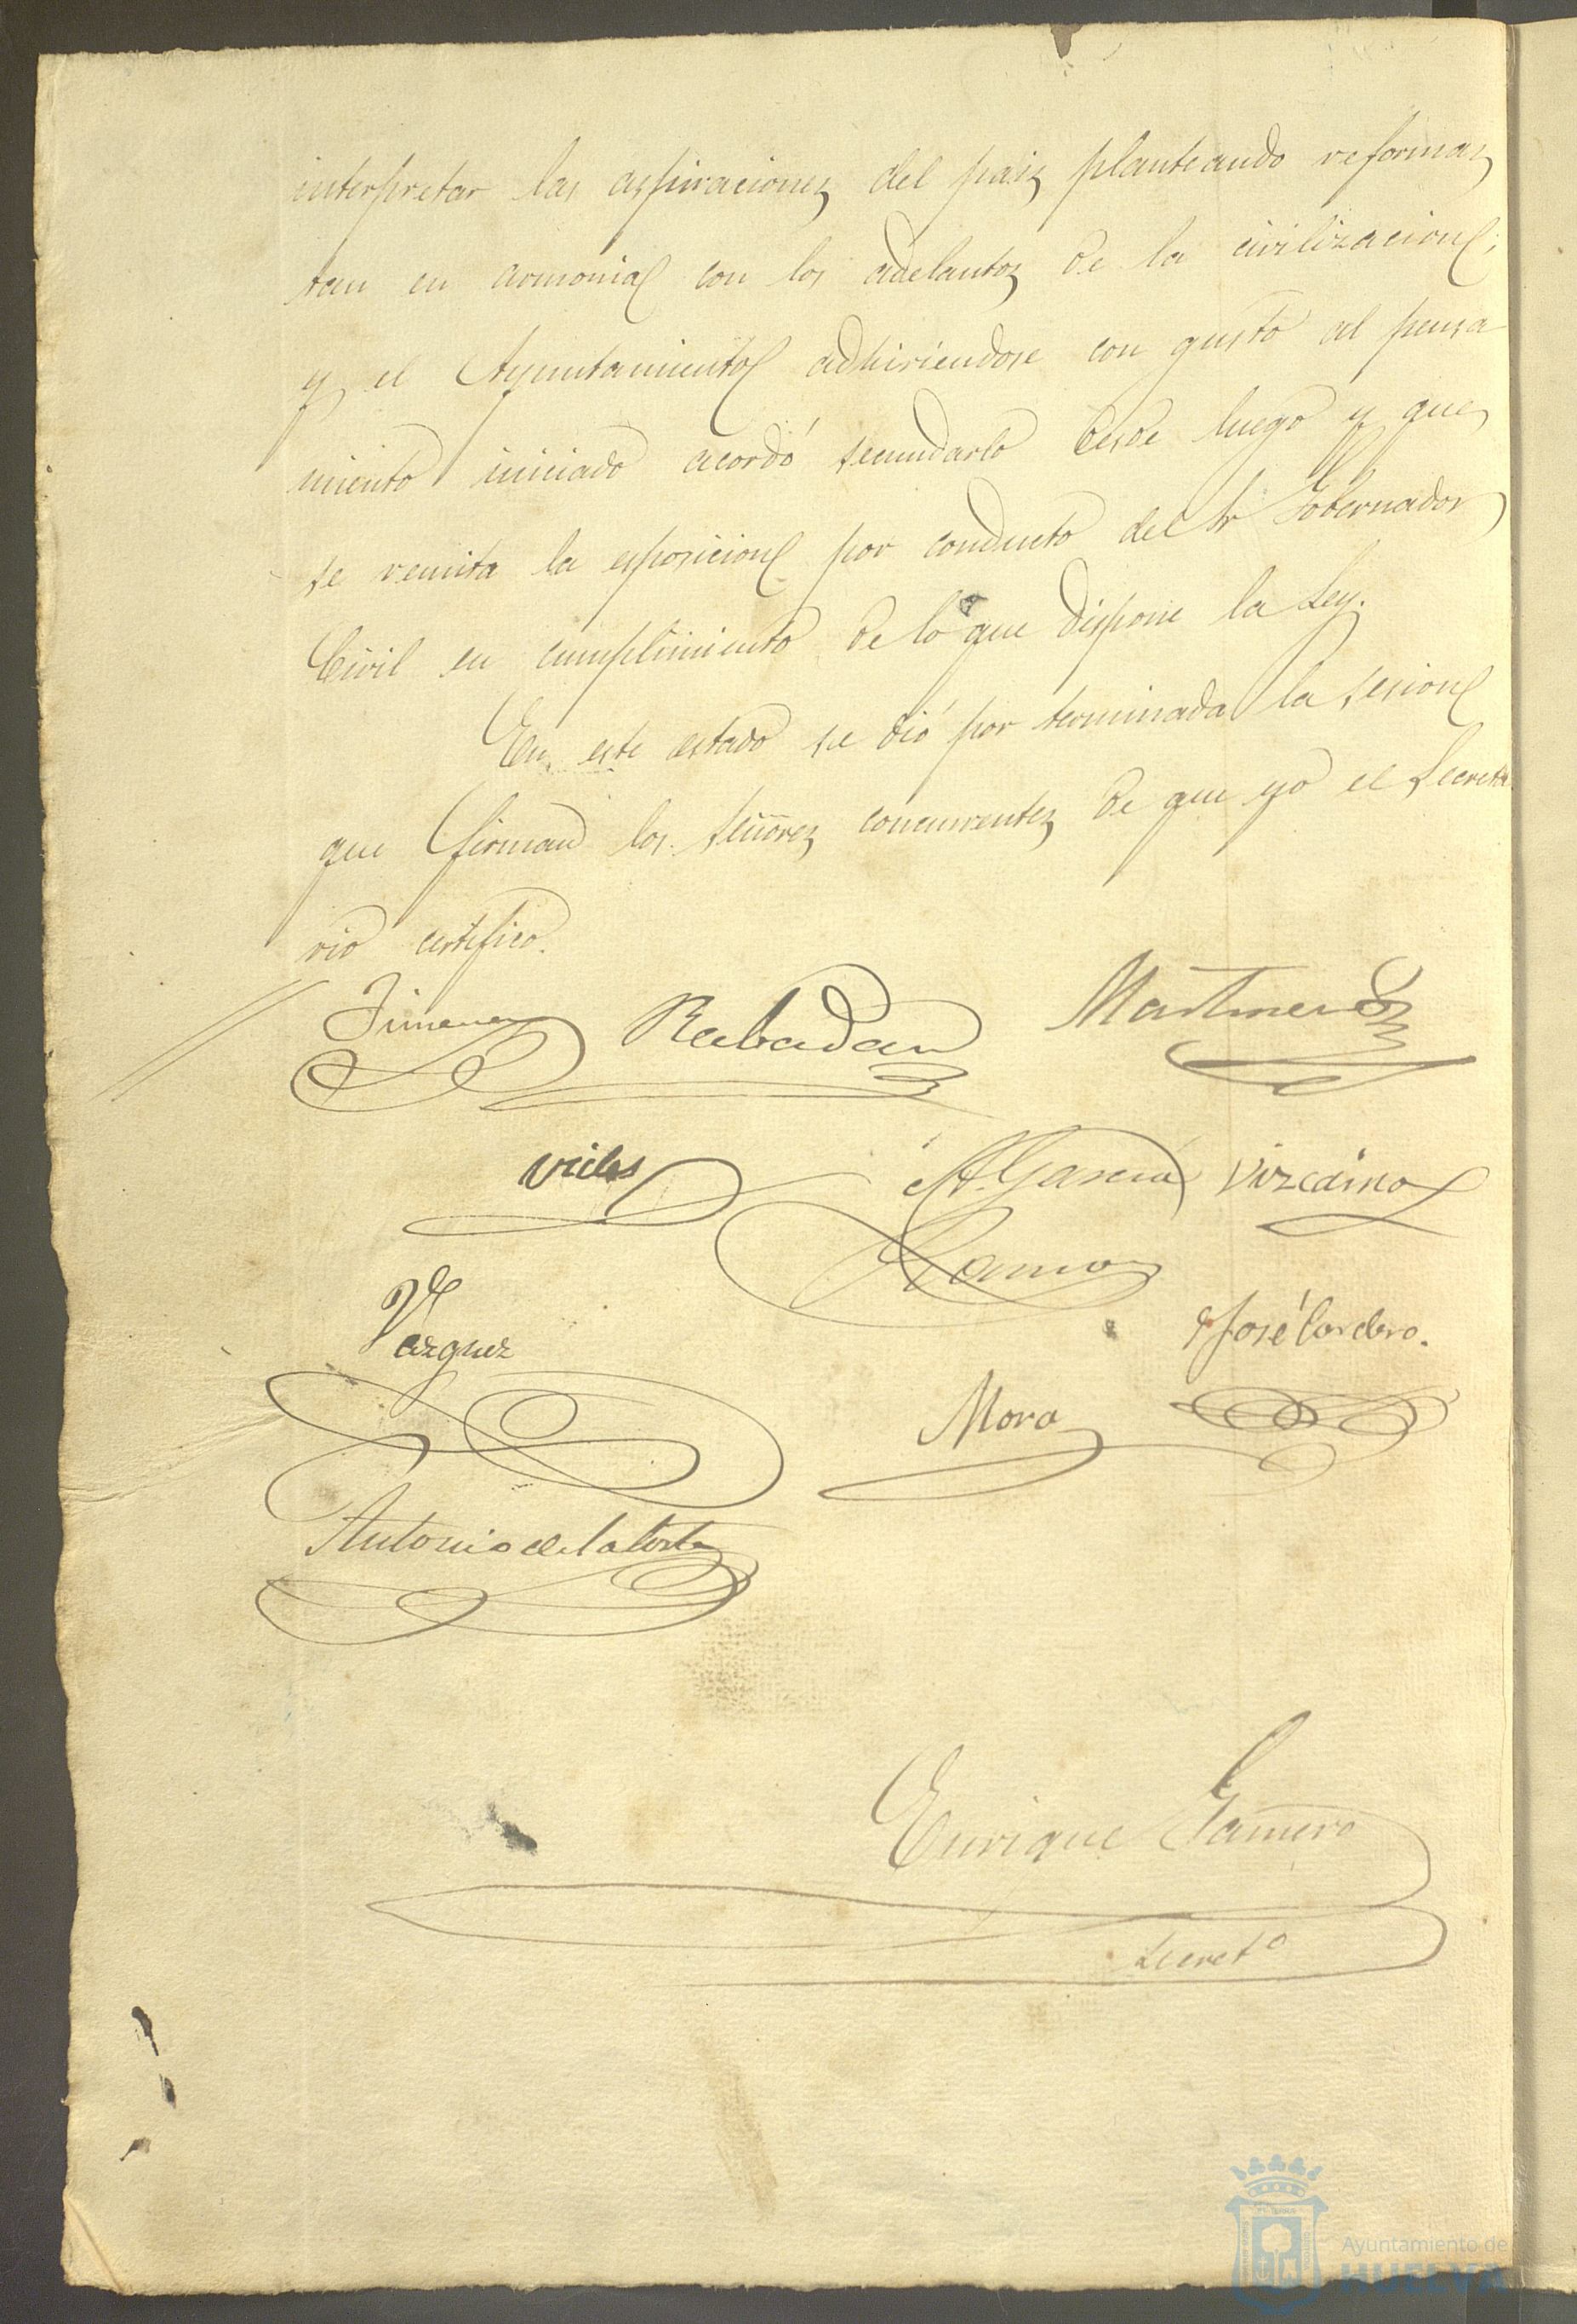 interpretar las aspiraciones del pais planteando reformas
tan en armonia con los adelantos de la civilizacion;
y el Ayuntamiento adhiriendose con gusto al pensa
miento iniciado acordó secundarlo desde luego y que
se remita la esposicion por conducto del Sr Gobernador
Civil en cumplimiento de lo que dispone la Ley.
En este estado se dió por terminada la sesion
que firman los señores concurrentes de que yo el Secreta
rio certifico.
Jimenez Rabadan Martinez
A. Garcia Vizcaino
Ramos
Vazquez
José Cordero.
Mora
Antonio de la Corte
Enrique Gamero
Secret.o
Ayuntamiento de
HUELVA